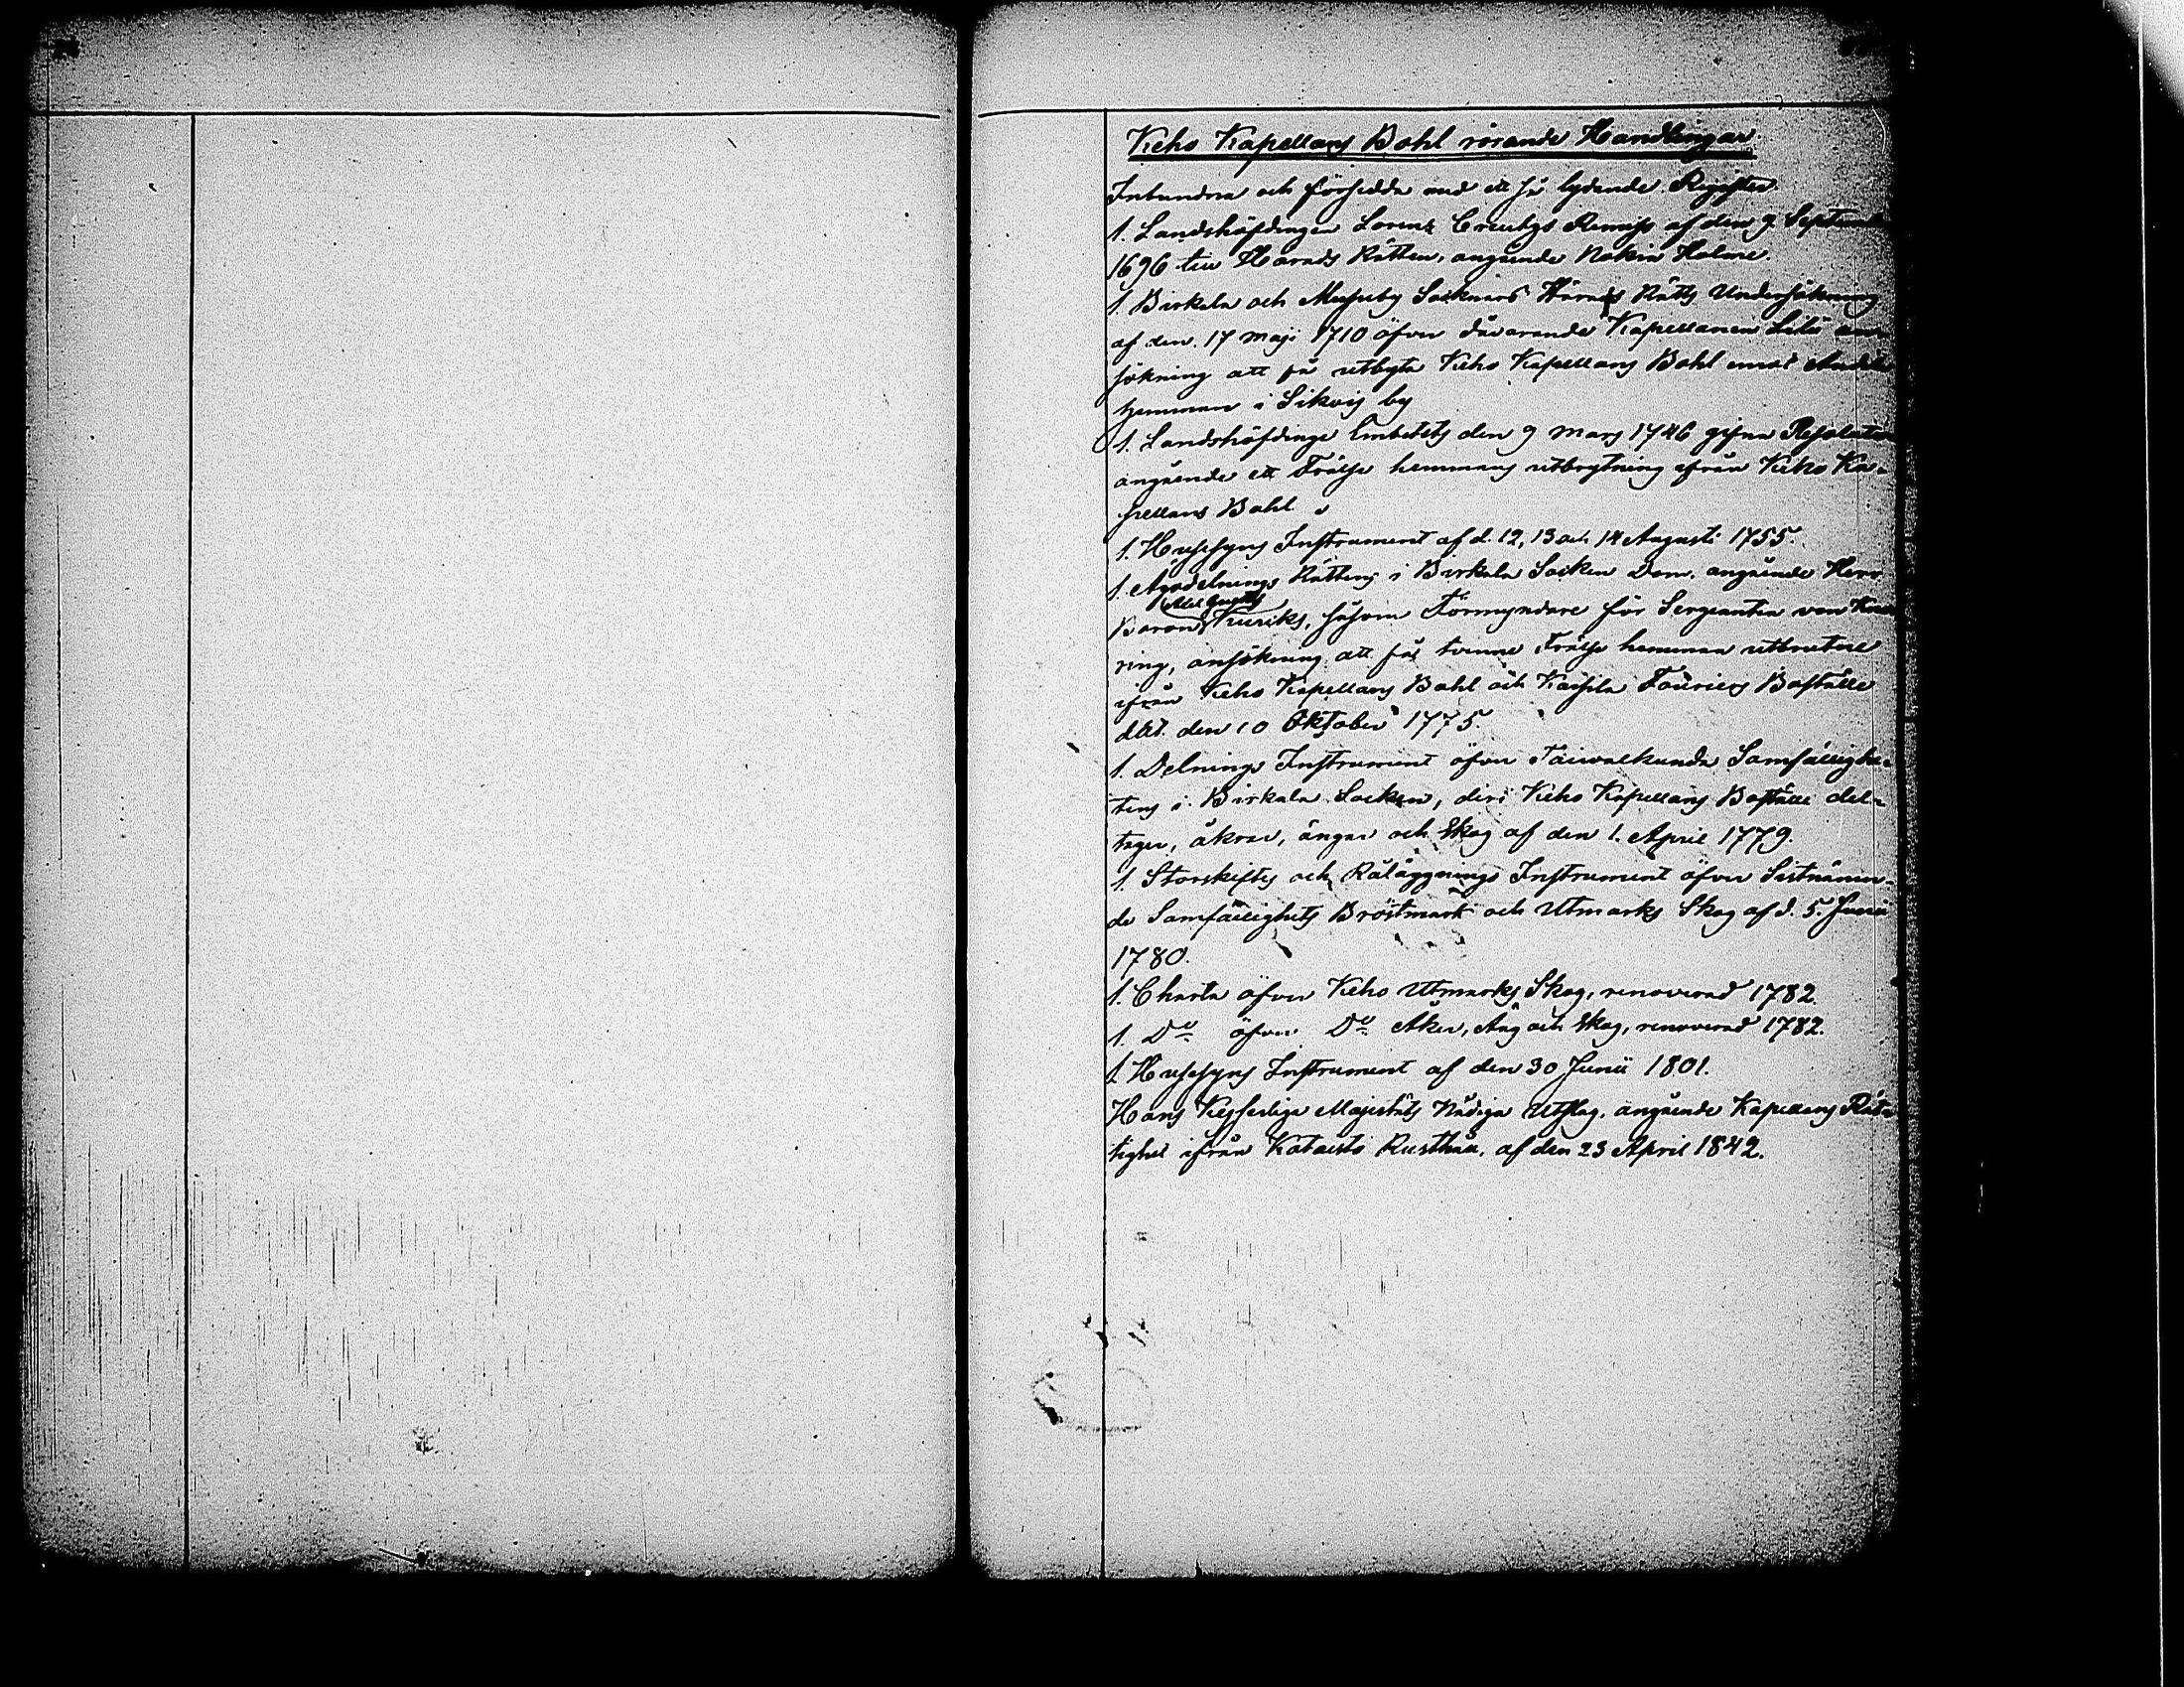 Keho Kapellans Bohl rörande Handlingar
Inbundna och försedda med ett så lydande Register.
1. Landshöfdingen Lorenz Creutz's Remiss af den 9 Septemb
1696 till Härads Rätten, angående Nokia Holme.
1. Birkala och Messuby Socknars Härads Rätts Undersökning
af den 17 Maji 1710 öfver dåvarande Kapellanen an-
sökning att få utbyta Keho Kapellans Bohl emot
hemman i Sikvis by
1. Landshöfdinge Embetets den 9 Mars 1746 gifna Resolution
angående ett Frälse hemmans utbrytning ifrån Keho Ka-
pellans Bohl
1. Husesyns Instrument af d. 12, 13 och 14 Augusti 1755.
1. Ägodelnings Rättens i Birkala Socken Dom, angående Herr
Baron, såsom Förmyndare för Sergeanten von
ring, ansökning att få tvenne Frälse hemman utbrutne
ifrån Keho Kapellans Bohl och Kaisila Fouriers Boställe
dat. den 10 Oktober 1775.
1. Delnings Instrument öfver Taivalkunda Samfällighe-
tens i Birkala Socken, deri Keho Kapellans Boställe del-
tager, åkrar, ängar och Skog af den 1. April 1779.
1. Storskiftes och Råläggnings Instrument öfver Sistnämn-
de Samfällighets Bröstmark och Utmarks Skog af d. 5. Junii
1780.
1. Charta öfver Keho Utmarks Skog, renoverad 1782.
1. Do öfver Do Åker, Äng och Skog, renoverad 1782.
1. Husesyns Instrument af den 30 Junii 1801.
Hans Kejserliga Majestäts Nådiga Utslag, angående Kapellans Rät-
tighet ifrån Kataisto Rusthåll, af den 23 April 1842.